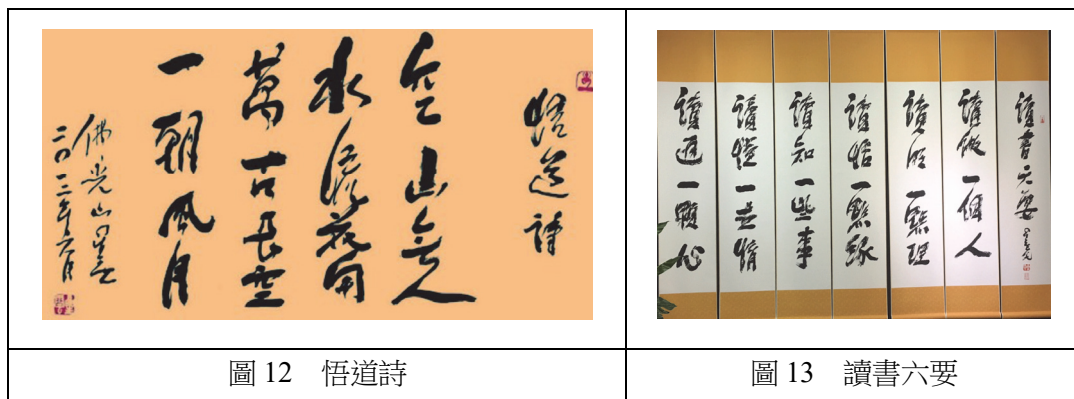 悟道詩
空山無人
水流花開
萬古長空
一朝風月
佛光山星雲
讀書六要 星雲
讀做一個人
讀明一點理
讀悟一點緣
讀知一些事
讀懂一世情
讀通一顆心
圖 12 悟道詩
圖 13 讀書六要